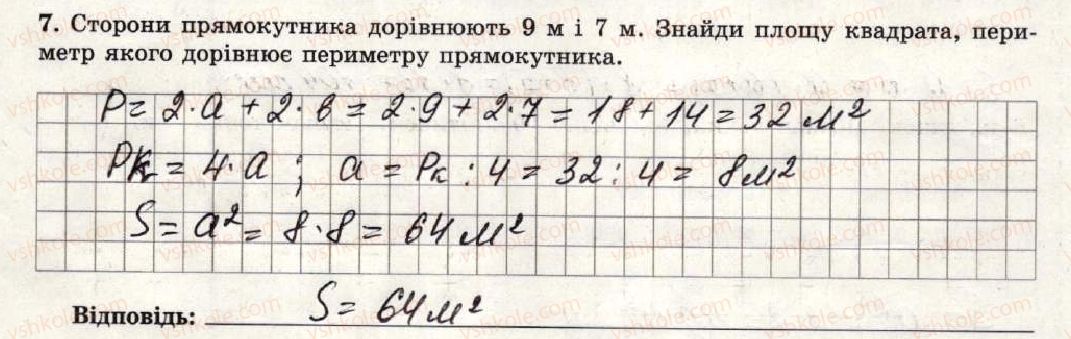 7. Сторони прямокутника дорівнюють 9 м і 7 м. Знайди площу квадрата, пери-
метр якого дорівнює периметру прямокутника.
P = 2·a + 2·в = 2·9 + 2·7 = 18 + 14 = 32 м²
Pк = 4·a ; a = Pк : 4 = 32 : 4 = 8 м²
S = a² = 8·8 = 64 м²
Відповідь: S = 64 м²